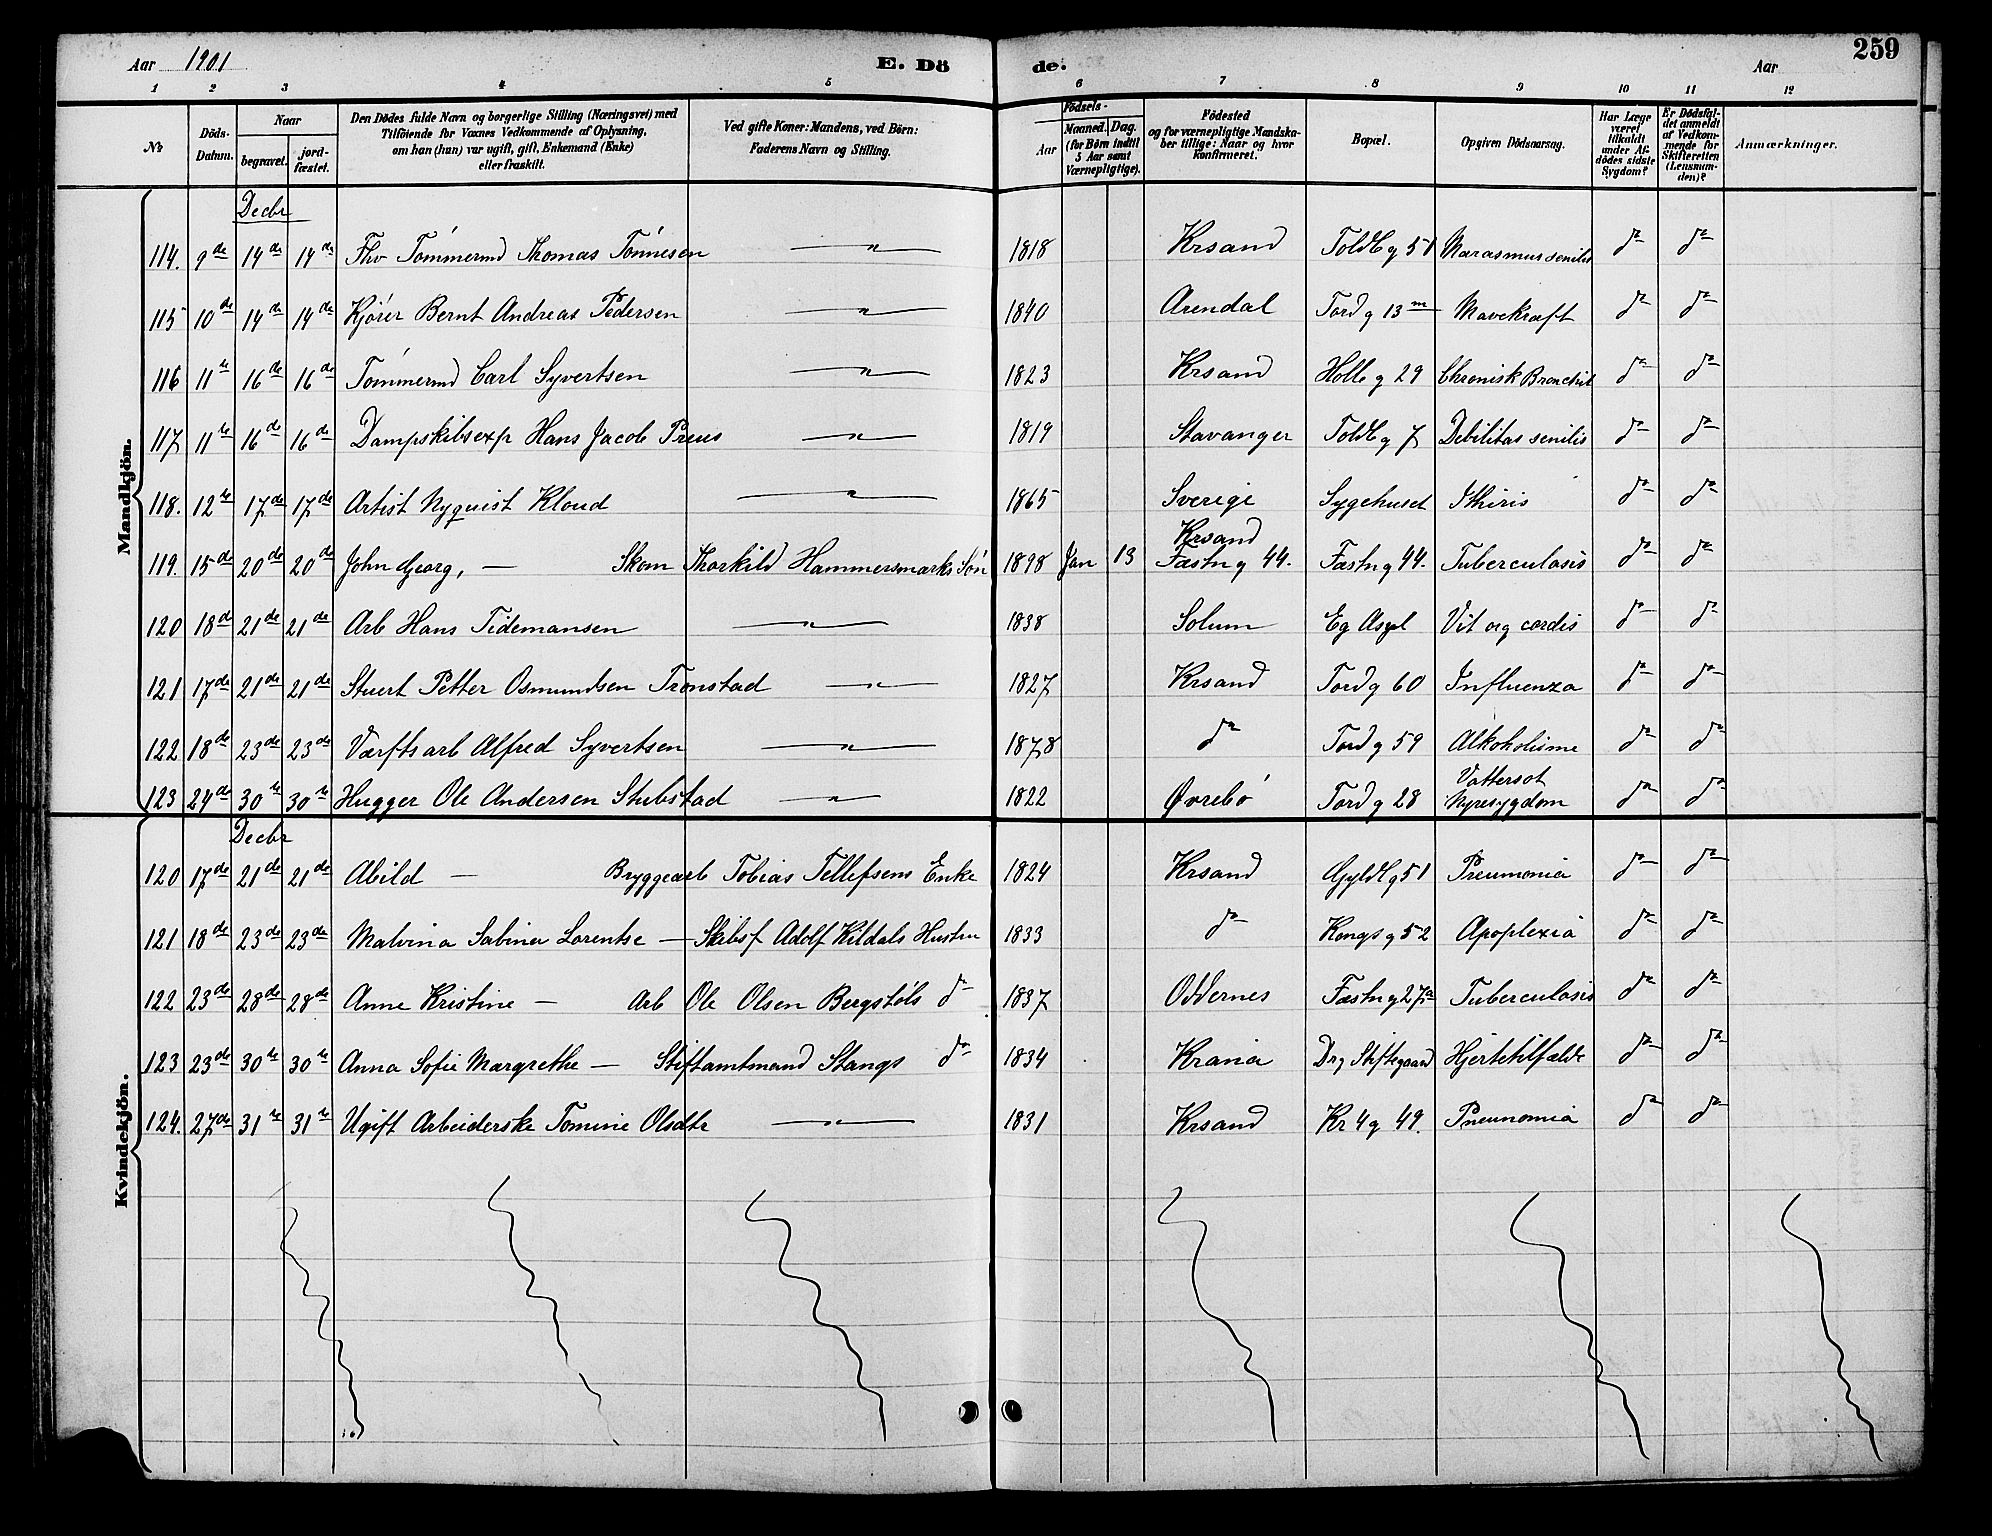 Aar 1901 E. Döde. Aar 259
1 2 3 4 5 6 7 8 9 10 11 12
No Döds-Datum. Naar begravet. jordfæstet. Den Dödes fulde Navn og borgerlige Stilling (Næringsvei) med Tilföiende for Voxnes Vedkommende af Oplysning, om han (hun) var ugift, gift, Enkemand (Enke) eller fraskilt. Ved gifte Koner: Mandens, ved Börn: Faderens Navn og Stilling. Födsels- Aar Maaned. Dag. (for Börn indtil 5 Aar samt Værnepligtige). Födested og for værnepligtige Mandskaber tillige: Naar og hvor konfirmeret. Bopæl. Opgiven Dödsaarsag. Har Læge været tilkaldt under Afdödes sidste Sygdom? Er Dödsfaldet anmeldt af Vedkommende for Skifteretten (Lensmanden)? Anmærkninger.
Mandkjön.
Decbr
114. 9de 14de 14de Fhv Tömmermd Thomas Tönnesen — " — 1818 Krsand Toldbg 51 Marasmus senilis do do
115 10de 14de 14de Kjörer Bernt Andreas Pedersen — " — 1840 Arendal Tordg 13 Mavekræft do do
116 11te 16de 16de Tömmermd Carl Syvertsen — " — 1823 Krsand Holbg 29 Chronisk Bronchit do do
117 11te 16de 16de Dampskibsexp Hans Jacob Preus — " — 1819 Stavanger Toldbg 7 Debilitas senilis do do
118. 12te 17de 17de Artist Nyquist Kloud — " — 1865 Sverige Sygehuset do do
119. 15de 20de 20de John Georg, — Skom Thorkild Hammersmarks Sön 1898 Jan 13 Krsand Fæstng 44. Fæstng 44. Tuberculosis do do
120 18de 21de 21de Arb Hans Tidemansen — " — 1838 Solum Eg Asyl Vit org cordis do do
121 17de 21de 21de Stuert Petter Osmundsen Tronstad — " — 1827 Krsand Tordg 60 Influenza do do
122 18de 23de 23de Værftsarb Alfred Syvertsen — " — 1878 do Tordg 59 Alkoholisme do do
123 24de 30te 30te Hugger Ole Andersen Stubstad — " — 1822 Øvrebö Tordg 28 Vattersot Nyresygdom do do
Kvindekjön.
Decbr
120 17de 21de 21de Abild — Bryggearb Tobias Tellefsens Enke 1824 Krsand Gyldlg 51 Pneumonia do do
121 18de 23de 23de Malvina Sabina Lorentse — Skibsf Adolf Kildals Hustru 1833 do Kongsg 52 Apoplexia do do
122 23de 28de 28de Anne Kristine — Arb Ole Olsen Bergstöls do 1837 Oddernes Fæstng 27a Tuberculosis do do
123 23de 30te 30te Anna Sofie Margrethe — Stiftamtmand Stangs do 1834 Krania Drg Stiftsgaard Hjertetilfælde do do
124. 27de 31te 31te Ugift Arbeiderske Tomine Olsdtr — " — 1831 Krsand Kr 4g 49. Pneunomia do do